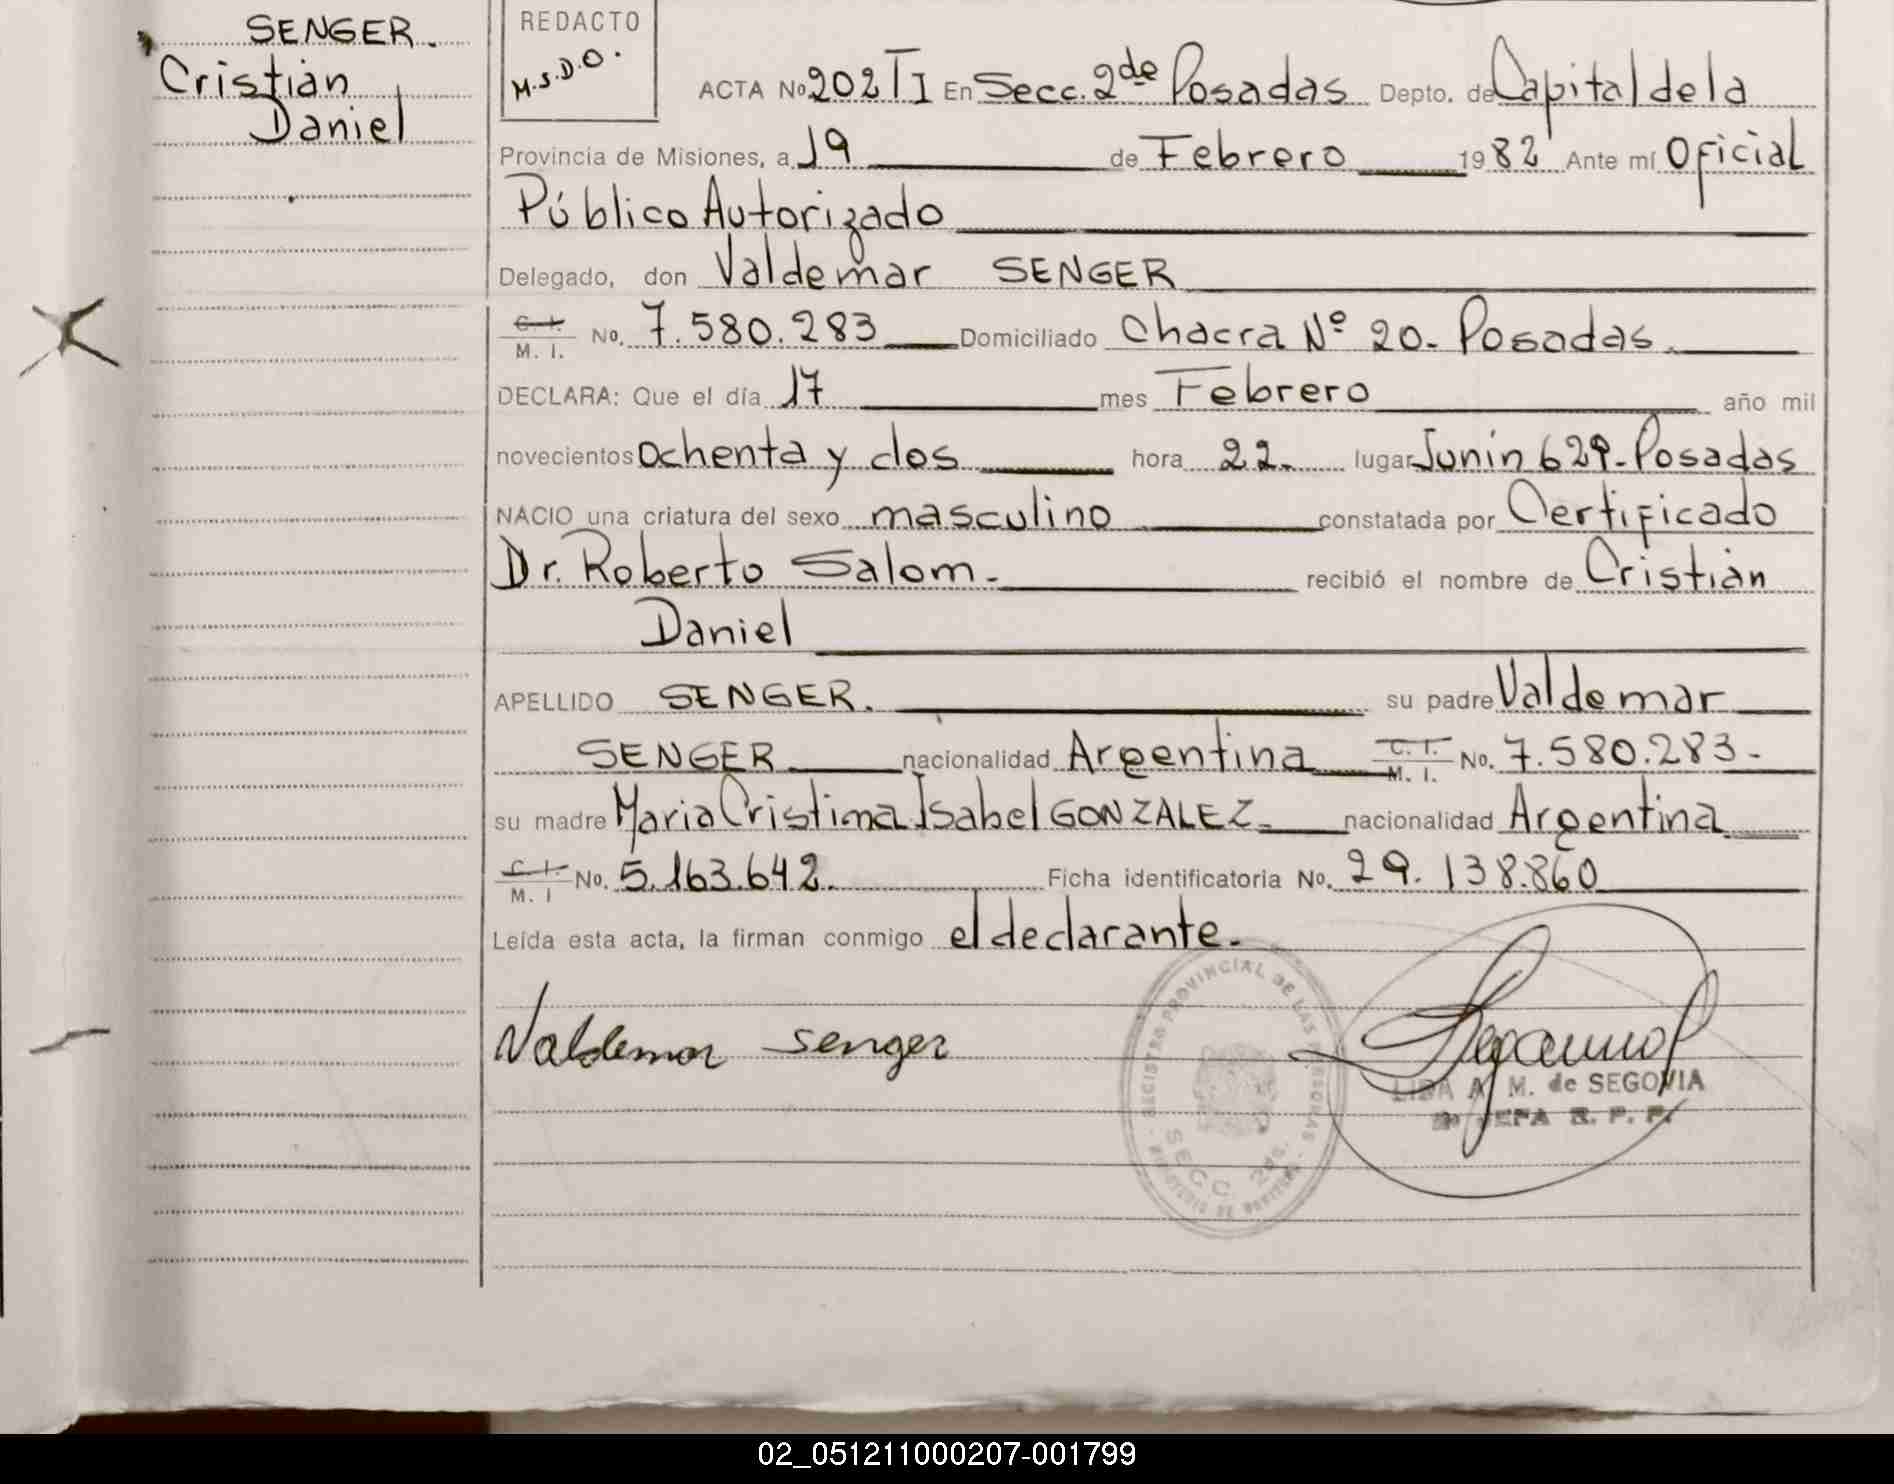 SENGER.
Cristian
Daniel
REDACTO
M.S.D.O.
ACTA No 202 T I En Secc. 2da Posadas Depto. de Capital de la
Provincia de Misiones, a 19 de Febrero 1982 Ante mí Oficial
Público Autorizado
Delegado, don Valdemar SENGER
C. I. M. I. No. 7.580.283 Domiciliado Chacra Nº 20- Posadas.
DECLARA: Que el día 17 mes Febrero año mil
novecientos Ochenta y dos hora 22. lugar Junin 629- Posadas
NACIO una criatura del sexo masculino constatada por Certificado
Dr. Roberto Salom- recibió el nombre de Cristian
Daniel
APELLIDO SENGER. su padre Valdemar
SENGER nacionalidad Argentina C. I. M. I. No. 7.580.283-
su madre Maria Cristina Isabel GONZALEZ- nacionalidad Argentina
C. I. M. I No. 5.163.642. Ficha identificatoria No. 29.138.860
Leída esta acta, la firman conmigo el declarante-
Valdemar Senger
REGISTRO PROVINCIAL DE LAS PERSONAS
SECC. 2da.
A. M. de SEGOVIA
JEFA R. P. P.
02_051211000207-001799